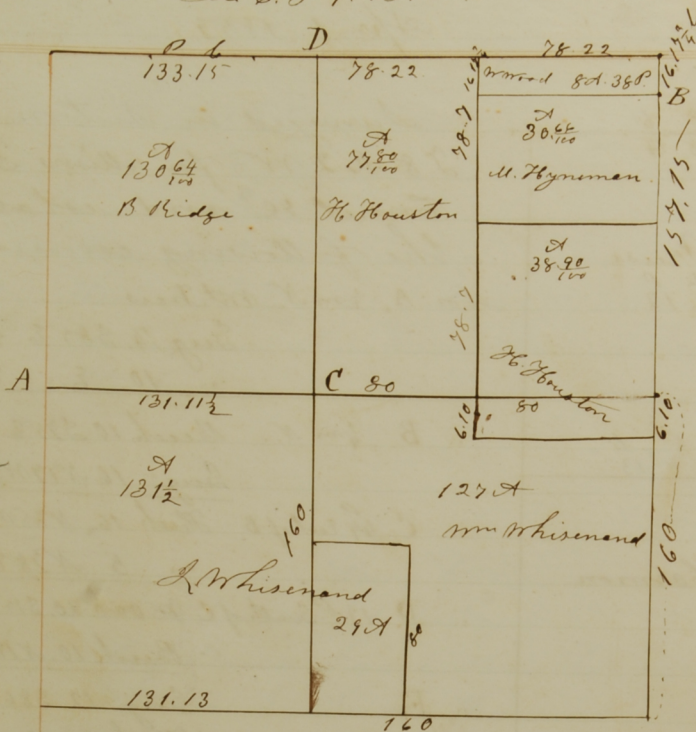 D
P 6
133.15
78.22
78 22
W Wood 8A. 38P.
B
A
130 64/100
B Ridge
A
77 80/100
H. Houston
78.7
A
30 66/100
M. Hyneman
157.15
A
38 90/100
78.7
H. Houston
A
C
131.11½
80
80
6.10
6.10
A
131½
160
127 A
Wm Whisenand
J Whisenand
29 A
80
160
131.13
160